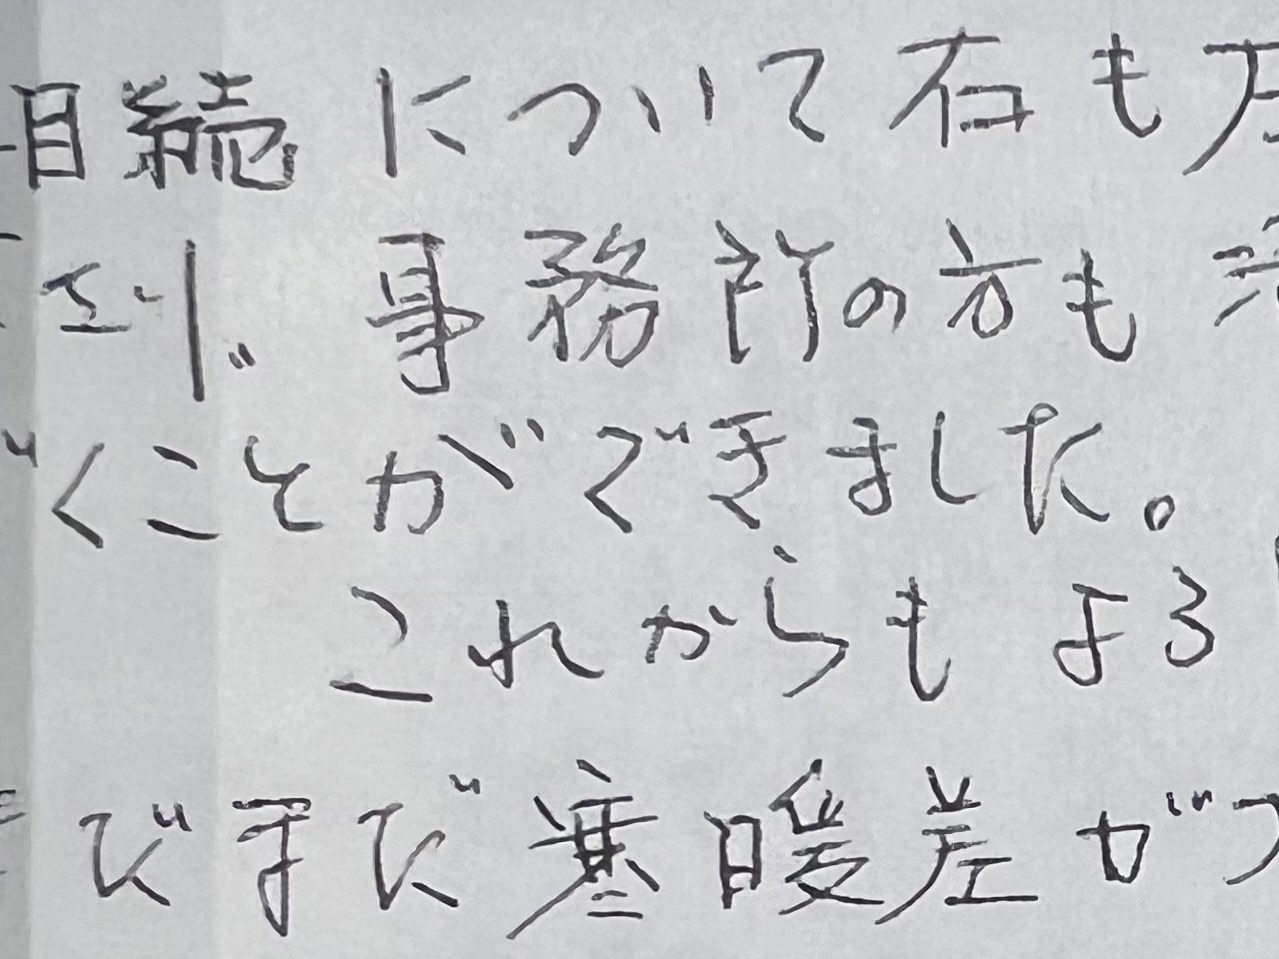 相続について右も左
事務所の方も
くことができました。
これからもよろ
だまだ寒暖差が